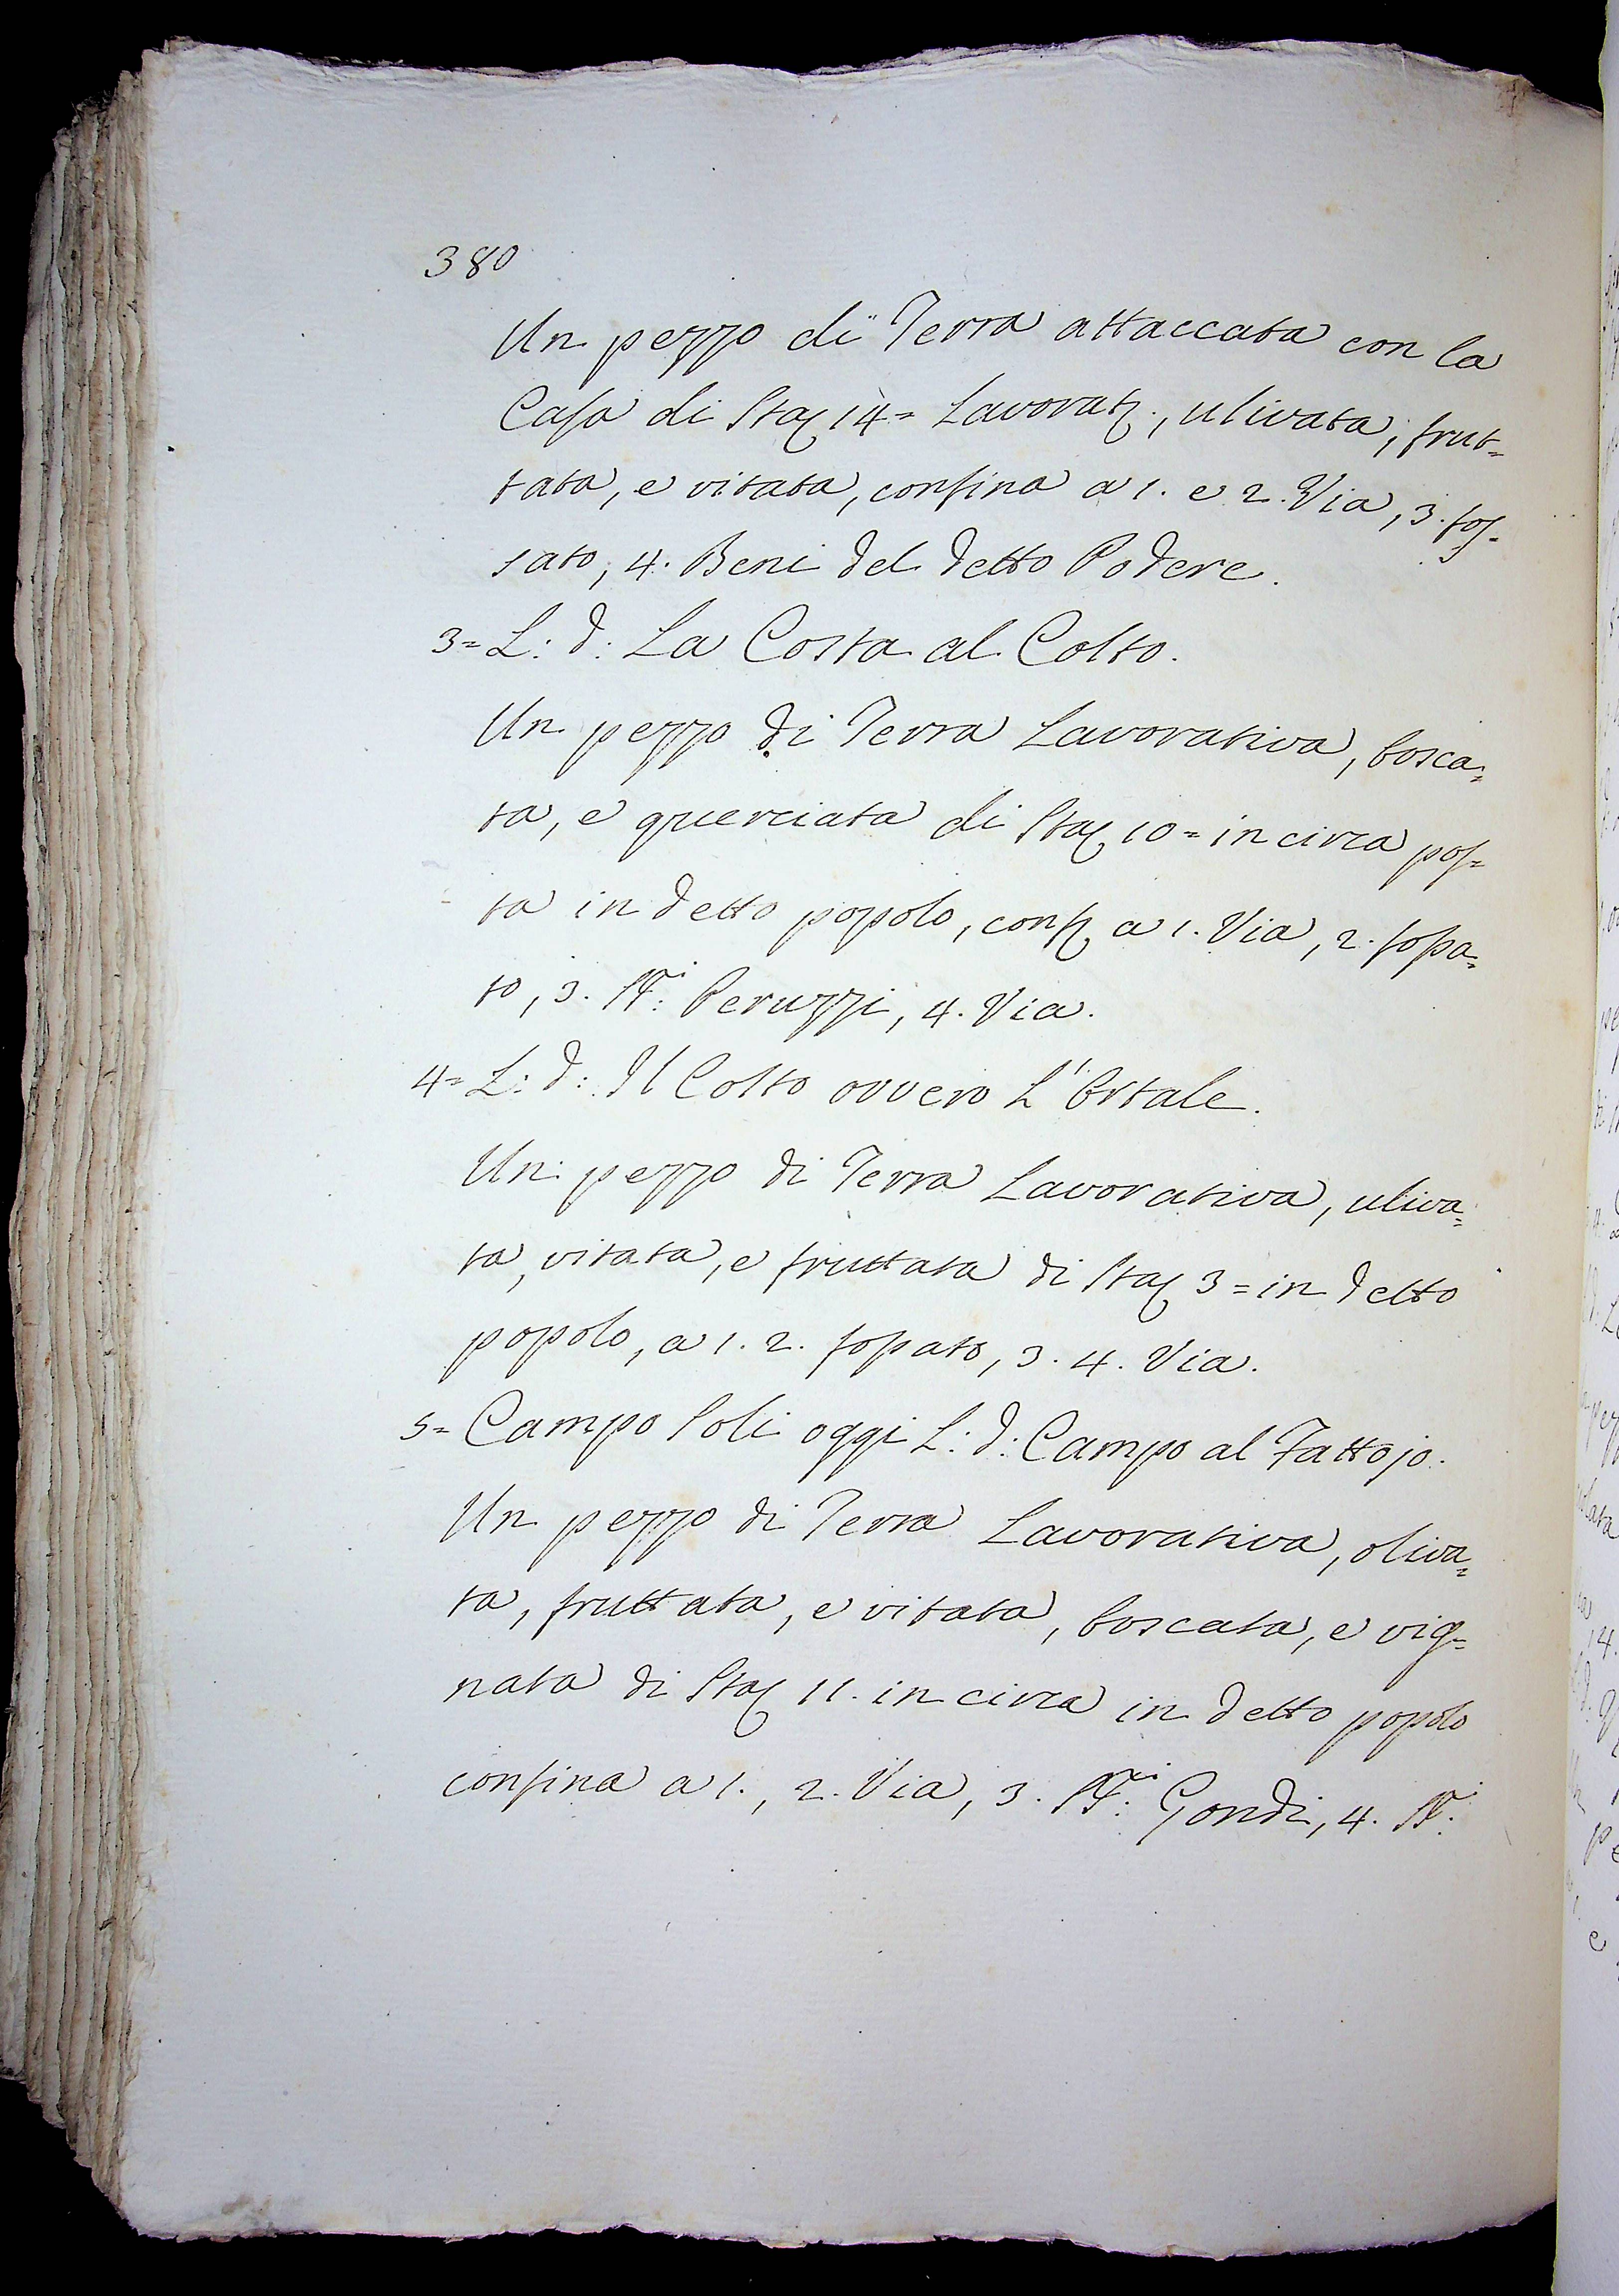 380
Un pezzo di Terra attaccata con la
Casa di Sta: 14= Lavorat:, ulivata, frut=
tata, e vitata, confina a 1. e 2. Via, 3. fos-
sato, 4. Beni del detto Podere.
3= L: d: La Costa al Colto.
Un pezzo di Terra Lavorativa, bosca=
ta, e querciata di Sta: 10= in circa pos=
ta in detto popolo, conf: a 1. Via, 2. fossa=
to, 3. SS:ri Peruzzi, 4. Via.
4= L: d: Il Colto ovvero L'Ortale.
Un pezzo di Terra Lavorativa, uliva=
ta, vitata, e fruttata di Sta: 3= in detto
popolo, a 1. 2. fossato, 3. 4. Via.
5= Campo Soli oggi L: d: Campo al Fattojo.
Un pezzo di Terra Lavorativa, oliva=
ta, fruttata, e vitata, boscata, e vig=
nata di Sta: 11. in circa in detto popolo
confina a 1., 2. Via, 3. SS:ri Gondi, 4. SS:ri